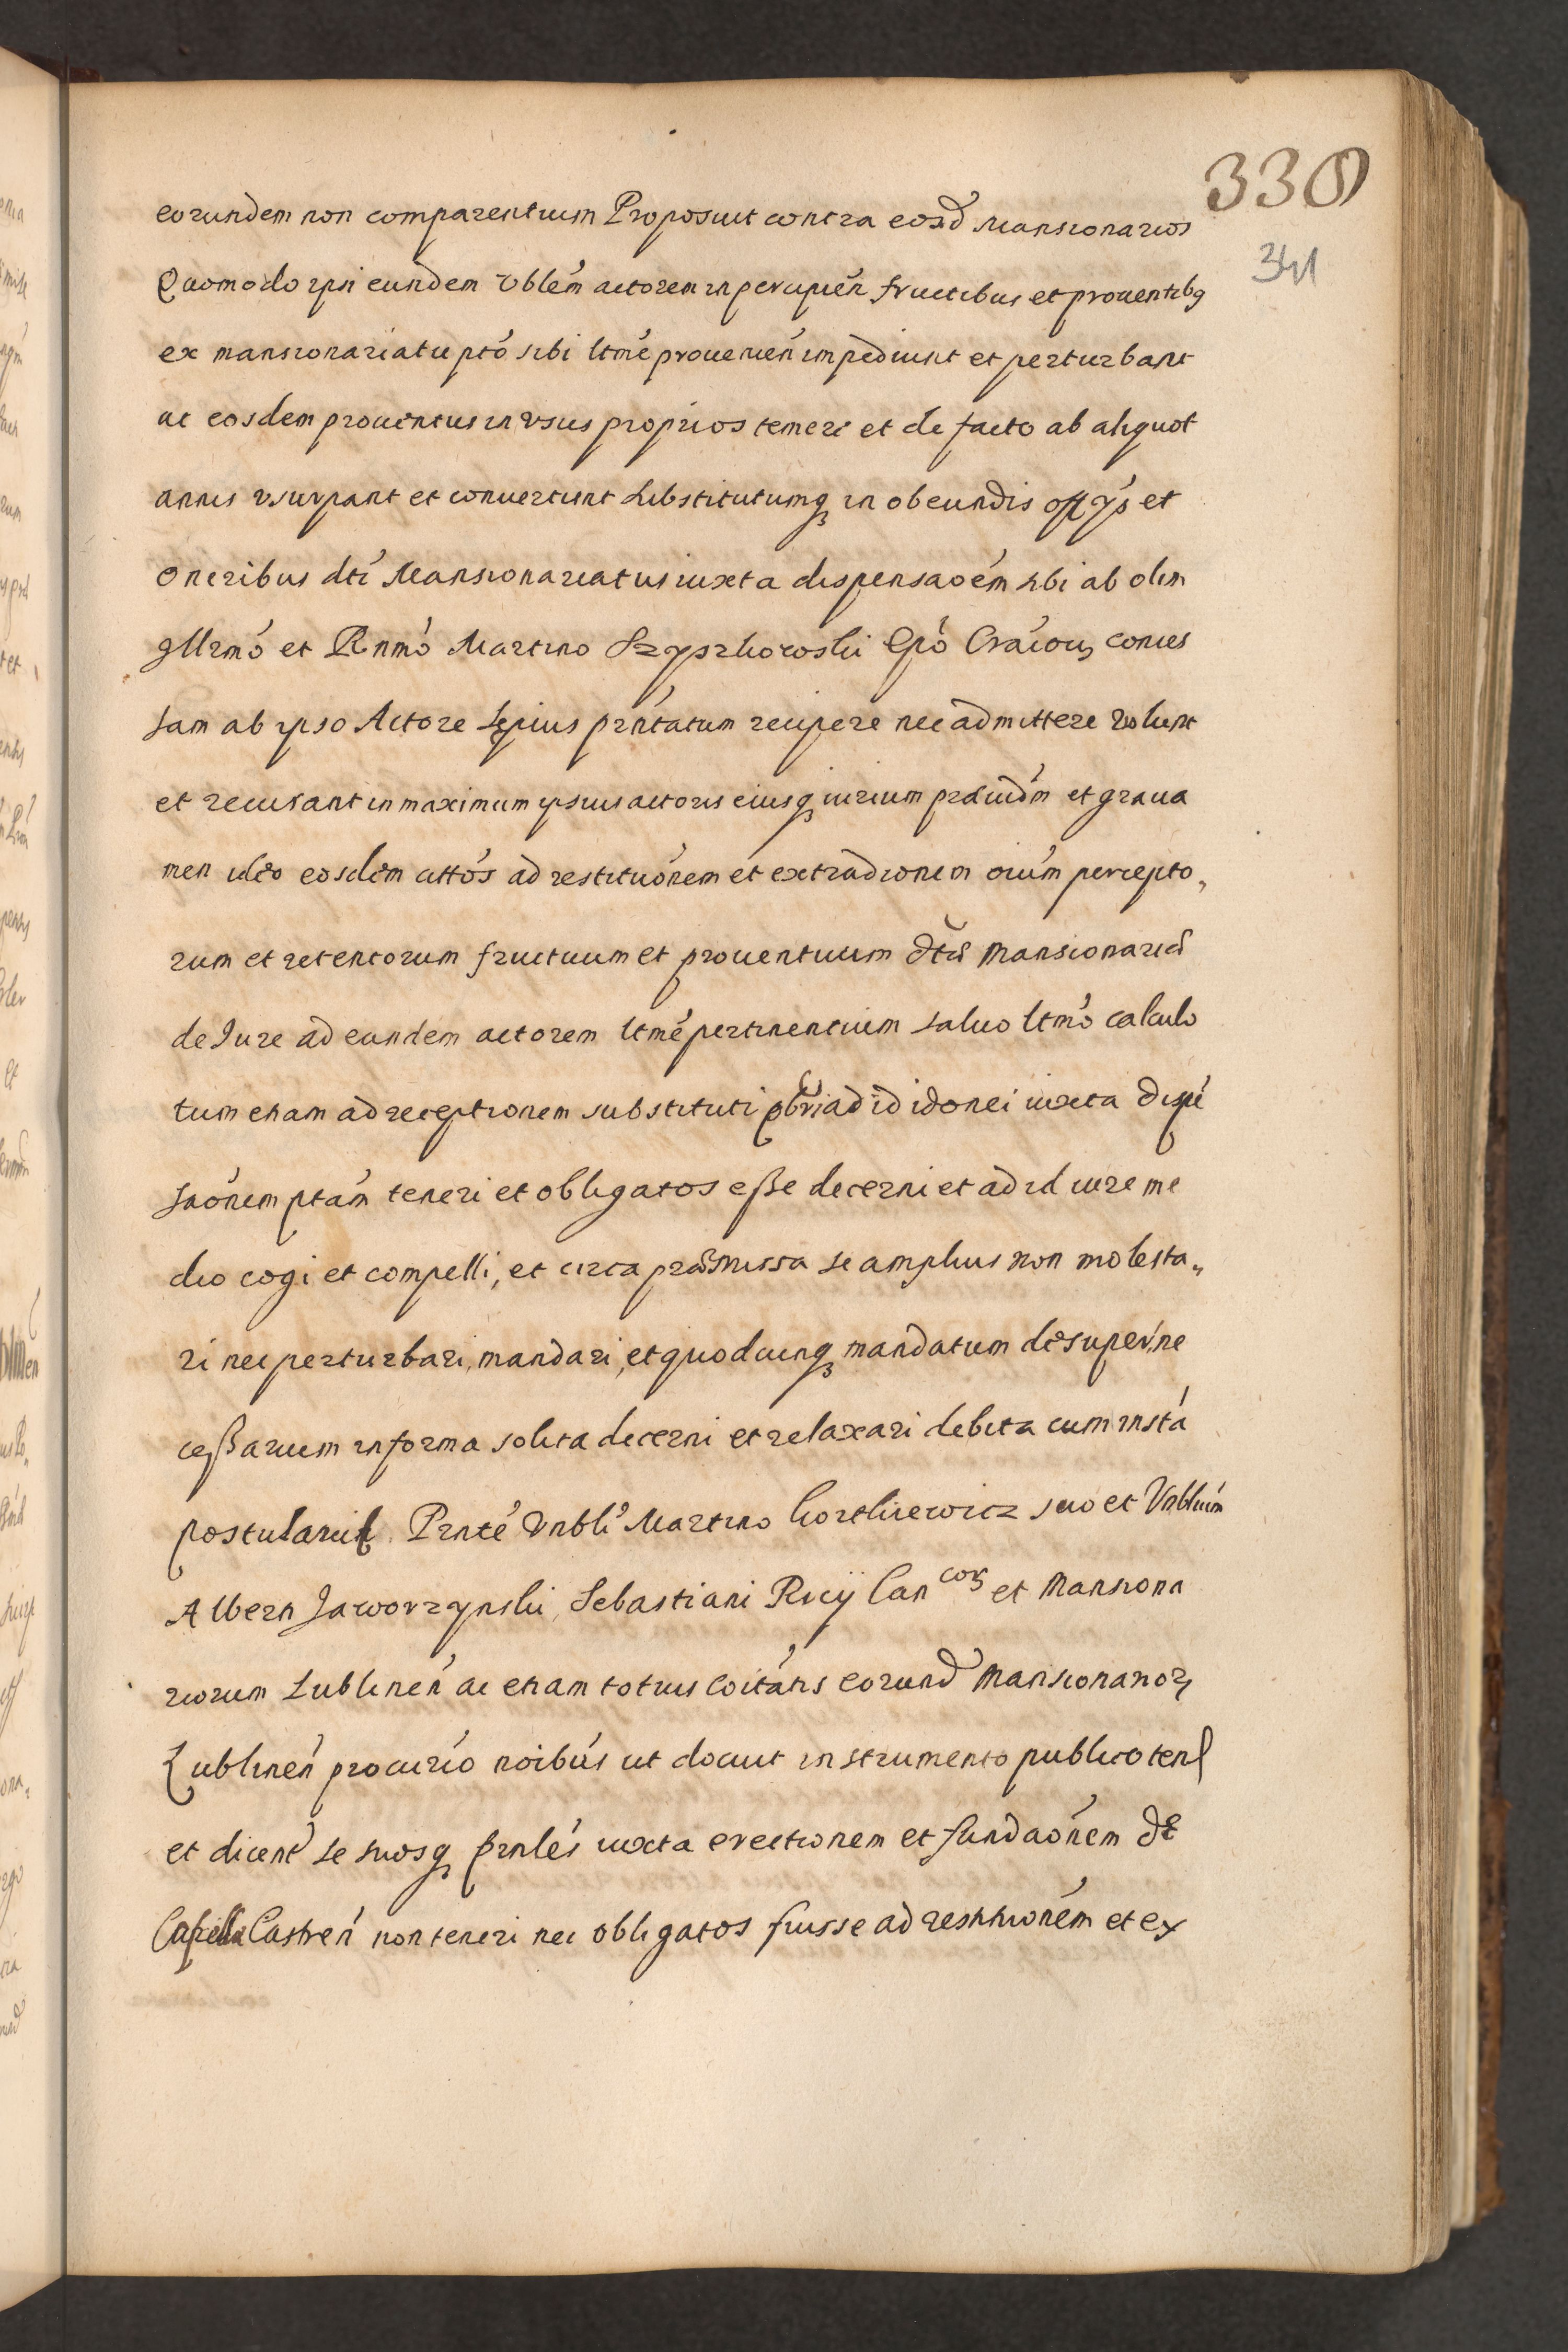 330
341
eorundem non comparentium Proposuit contra eosd Mansionarios
Quomodo ipsi eundem Vblem actorem in percipien fructibus et prouentibq
ex mansionariatu ptó sibi ltmé prouenien impediunt et perturbant
ac eosdem prouentus in vsus proprios temere et de facto ab aliquot
annis vsurpant et conuertunt Substitutumq in obeundis offys et
oneribus dti Mansionariatus iuxta dispensaoém sibi ab olim
Illrmó et Rnmó Martino Szyszkowski Epó Cracou conces
sam ab ipso Actore sępius prntatum recipere nec admittere volunt
et recusant in maximum ipsius actoris eiusq iurium preiudm et graua
men ideo eosdem cittós ad restituónem et extradionem oium percepto,
rum et retentorum fructuum et prouentuum dtæ Mansionariæ
de Jure ad eundem actorem ltmé pertinentium saluo ltmó calculo
tum etiam ad receptionem substituti pbri ad id idonei iuxta dispé
saónem ptám teneri et obligatos eße decerni et ad id iure me
dio cogi et compelli, et circa præmissa se amplius non molesta,
ri nec perturbari, mandari, et quodcunq mandatum desuper ne
ceßarium in forma solita decerni et relaxari debita cum instá
postulauit Prnté Vnbli Martino Gorlisewicz suo et Vnblium
Alberti Jaworzynski, Sebastiani Rucij Can cor et Mansiona
riorum Lublinen ac etiam totius Coitátis eorund Mansionarior
Lublinen procurio noibús ut docuit instrumento publico tenl
et dicent se suosq prnles iuxta erectionem et fundaónem dt
Capellæ Castren non teneri nec obligatos fuisse ad restituionem et ex